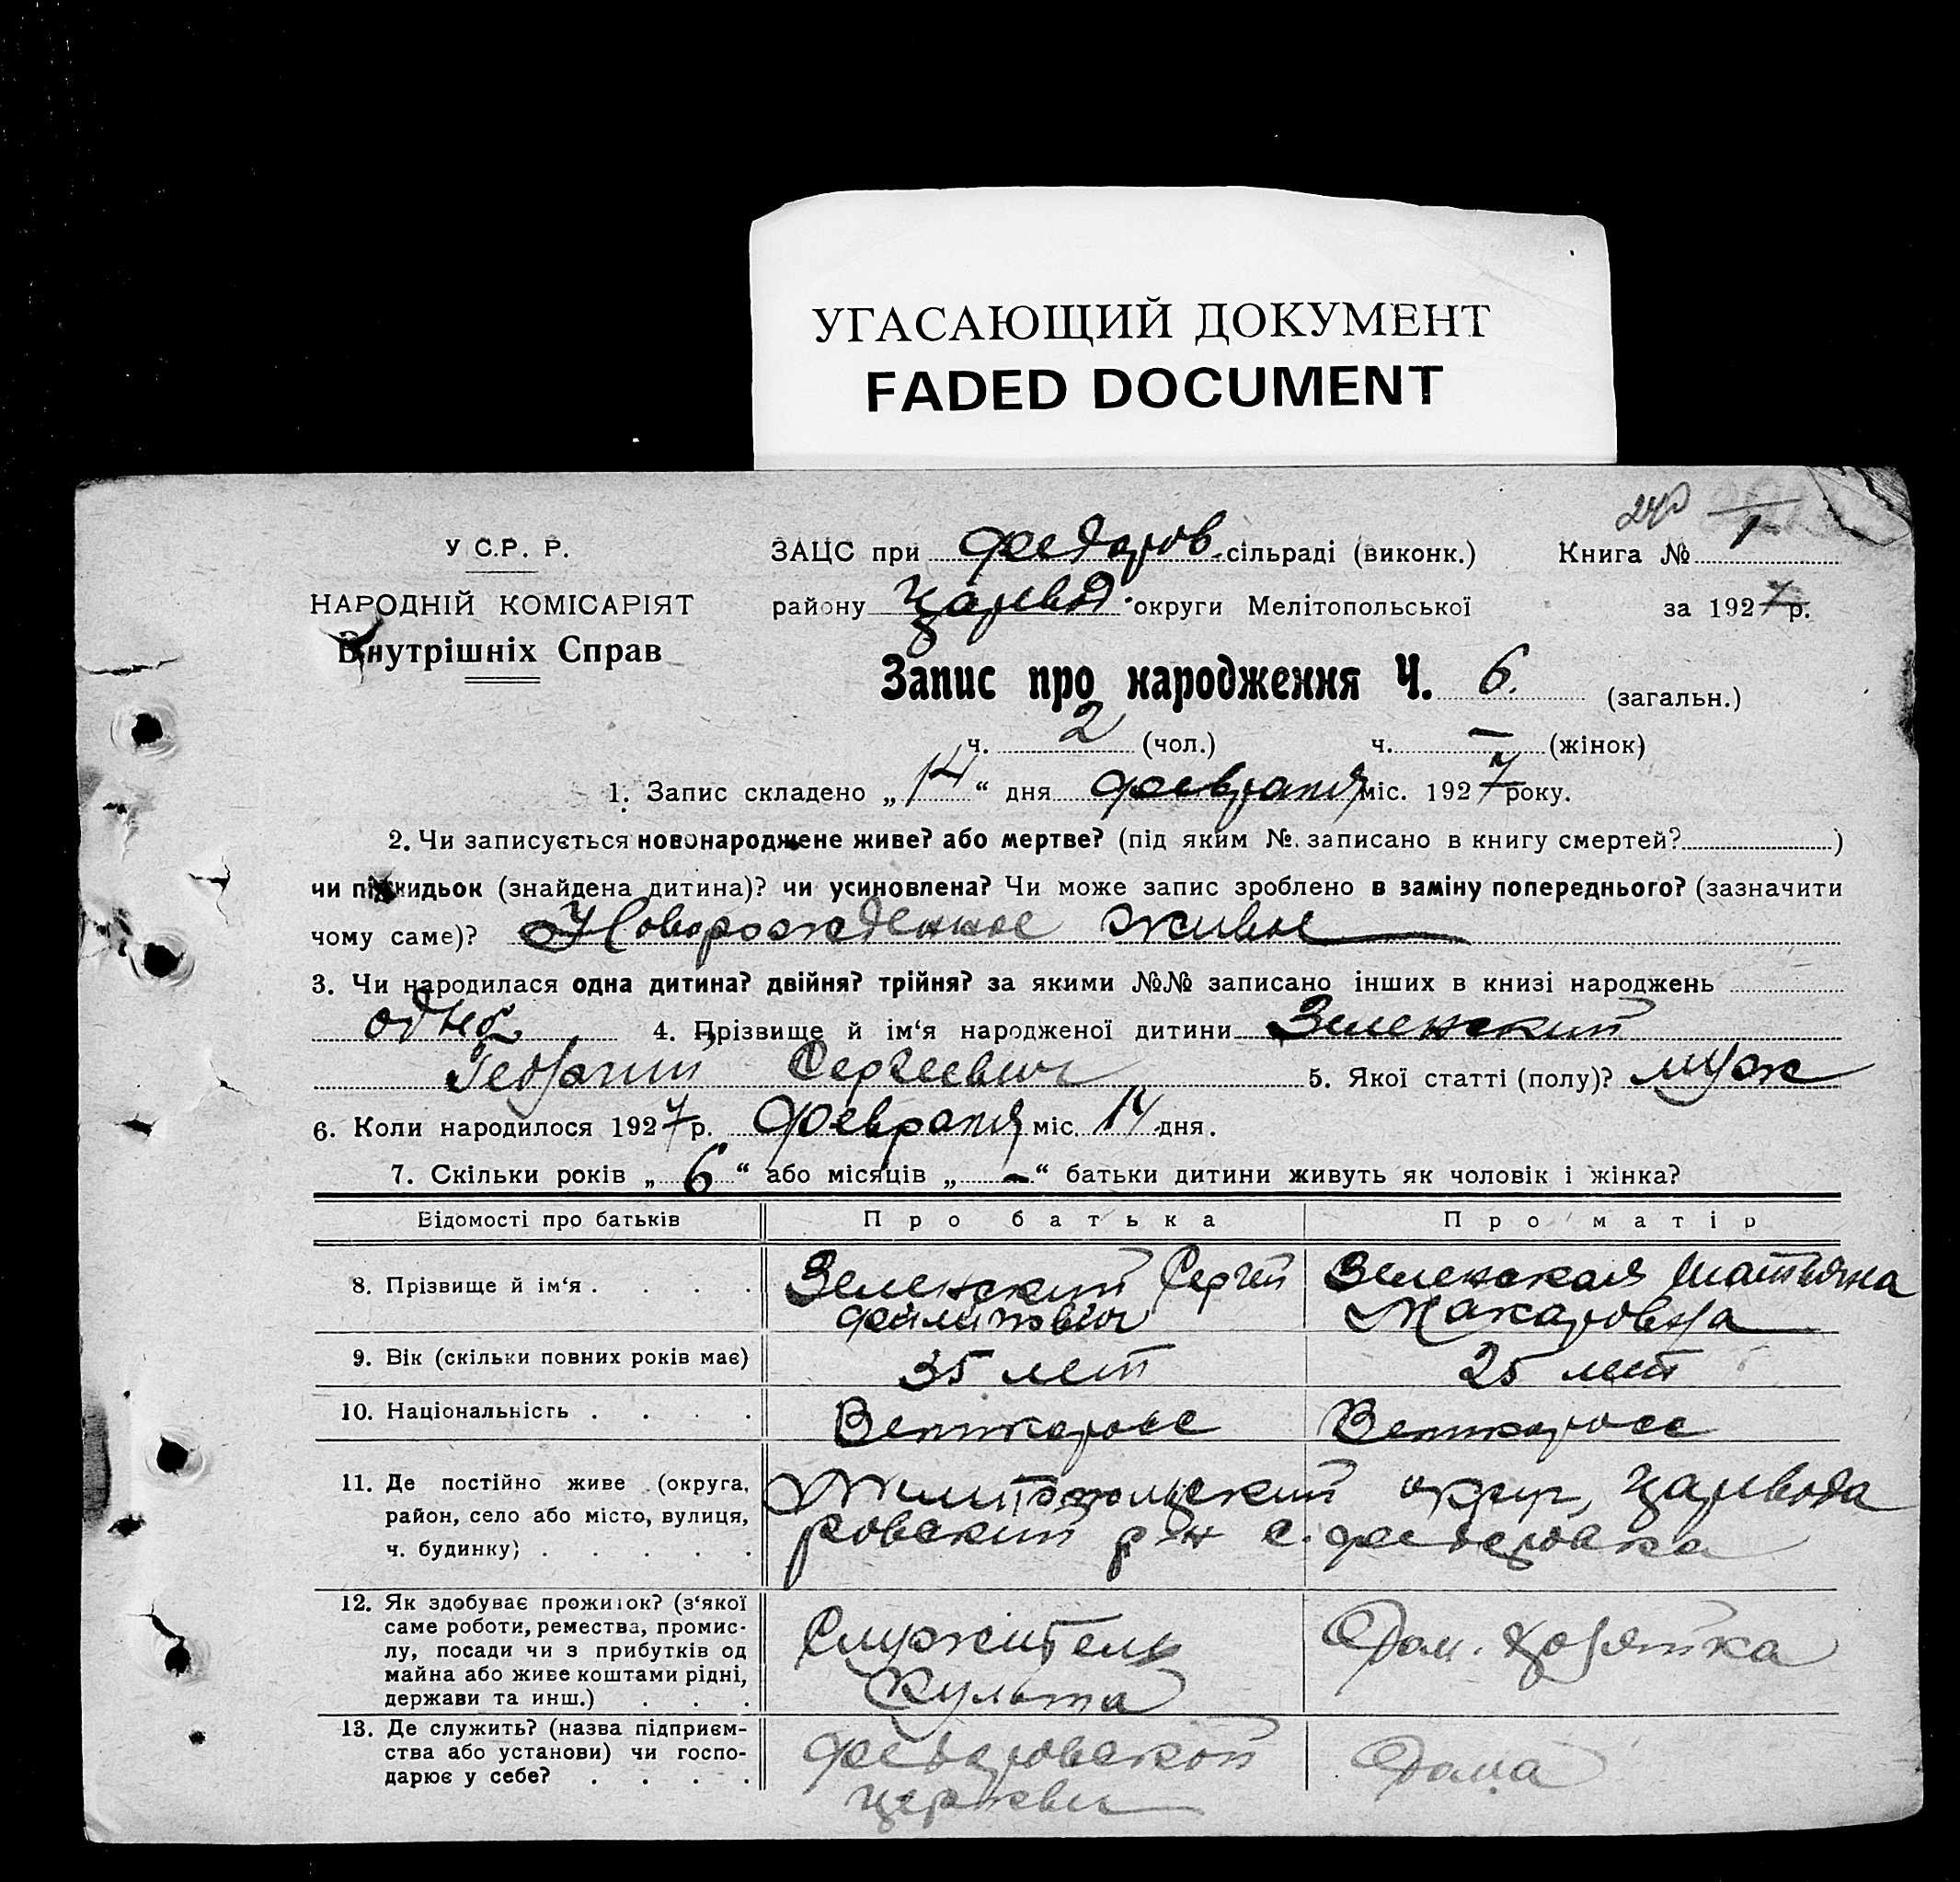 УГАСАЮЩИЙ ДОКУМЕНТ
FADED DOCUMENT
240
У С.Р. Р.
НАРОДНІЙ КОМІСАРІЯТ
Внутрішніх Справ
ЗАЦС при Федоров. сільраді (виконк.) Книга № 1
району Царевод. округи Мелітопольської за 1927 р.
Запис про народження Ч. 6. (загальн.)
ч. 2 (чол.) ч. – (жінок)
1. Запис складено „14“ дня февраля міс. 1927 року.
2. Чи записується новонароджене живе? або мертве? (під яким №. записано в книгу смертей? )
чи підкидьок (знайдена дитина)? чи усиновлена? Чи може запис зроблено в заміну попереднього? (зазначити
чому саме)? Новорожденное живое
3. Чи народилася одна дитина? двійня? трійня? за якими №№ записано інших в книзі народжень
одно 4. Прізвище й ім‘я народженої дитини Зеленский
Георгий Сергеевич 5. Якої статті (полу)? муж
6. Коли народилося 1927 р. февраля міс. 14 дня.
7. Скільки років „6“ або місяців „–“ батьки дитини живуть як чоловік і жінка?
Відомості про батьків Про батька Про матір
8. Прізвище й ім‘я . . . . Зеленский Сергей Зеленская Татьяна
Филипович Макаровна
9. Вік (скільки повних років має) 35 лет 25 лет
10. Національність . . . . Великоросс Великоросс
11. Де постійно живе (округа, Мелитопольский округ, Царевода
район, село або місто, вулиця, ровский р-н с. Федоровка
ч. будинку) . . . . .
12. Як здобуває прожиток? (з‘якої
саме роботи, ремества, промис- Служитель Дом. хозяйка
лу, посади чи з прибутків од
майна або живе коштами рідні, Культа
держави та инш.) . . .
13. Де служить? (назва підприєм-
ства або установи) чи госпо- Федоровской Дома
дарює у себе? . . . . церкви